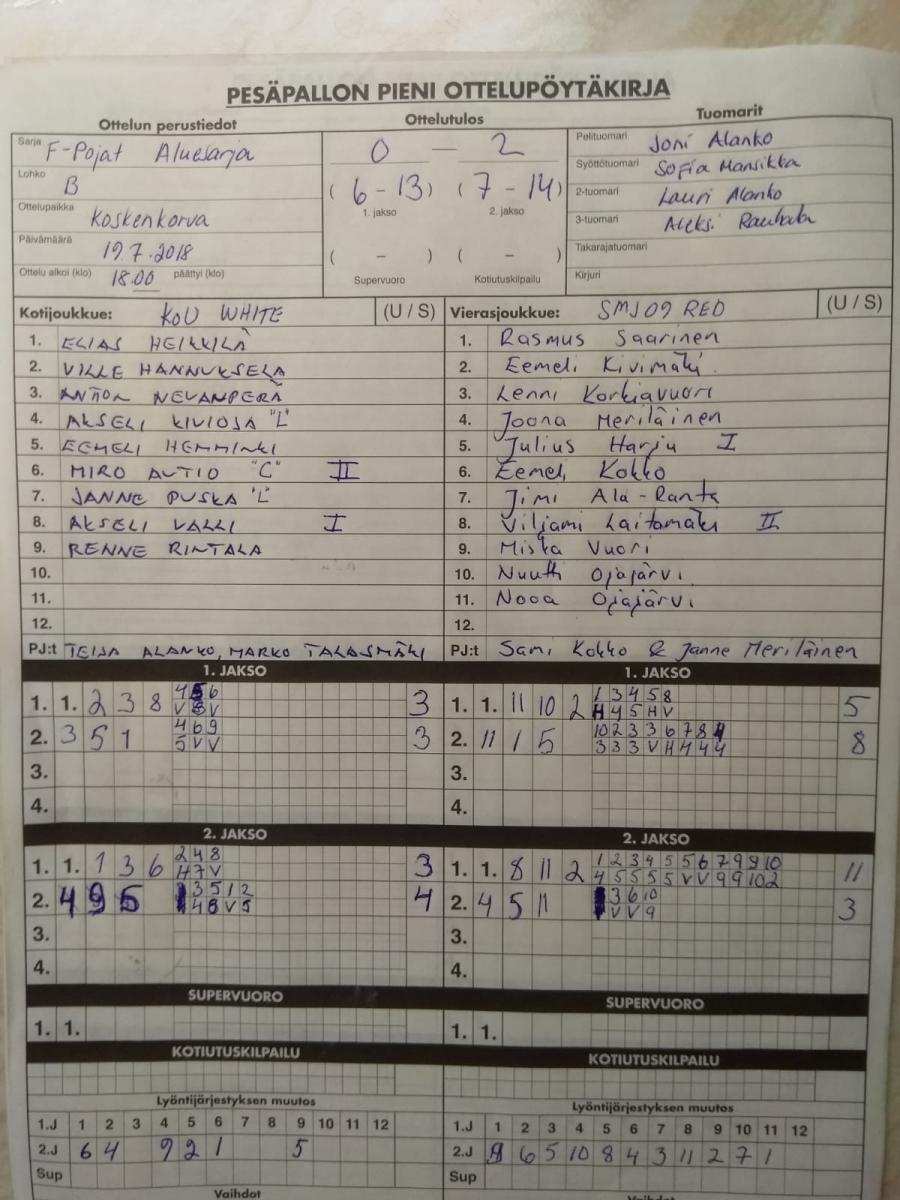 PESÄPALLON PIENI OTTELUPÖYTÄKIRJA
Ottelun perustiedot Ottelutulos Tuomarit
Sarja F-Pojat Aluesarja
Lohko B
Ottelupaikka Koskenkorva
Päivämäärä 19.7.2018
Ottelu alkoi (klo) 18.00 päättyi (klo)
0 - 2
(6 - 13) (7 - 14)
1. jakso 2. jakso
( - ) ( - )
Supervuoro Kotiutuskilpailu
Pelituomari Joni Alanko
Syöttötuomari Sofia Mansikka
2-tuomari Lauri Alanko
3-tuomari Aleksi Rauhala
Takarajatuomari
Kirjuri
Kotijoukkue: KOU WHITE (U / S)
1. ELIAS HEIKKILÄ
2. VILLE HANNUKSELA
3. ANTON NEVANPERÄ
4. AKSELI KIVIOJA "L"
5. EEMELI HEMMINKI
6. MIRO AUTIO "C" II
7. JANNE PUSKA "L"
8. AKSELI VALLI I
9. RENNE RINTALA
10.
11.
12.
PJ:t TEIJA ALANKO, MARKO TALASMÄKI
Vierasjoukkue: SMJ 09 RED (U / S)
1. Rasmus Saarinen
2. Eemeli Kivimäki
3. Lenni Korkiavuori
4. Joona Meriläinen
5. Julius Harju I
6. Eemeli Kokko
7. Jimi Ala-Ranta
8. Viljami Laitamäki II
9. Miska Vuori
10. Nuutti Ojajärvi
11. Nooa Ojajärvi
12.
PJ:t Sami Kokko & Janne Meriläinen
1. JAKSO 1. JAKSO
1. 1. 2 3 8 4 5 6 3
V V
2. 3 5 1 4 6 9 3
5 V V
3.
4.
1. 1. 11 10 2 1 3 4 5 8 5
H 4 5 H V
2. 11 1 5 10 2 3 3 6 7 8 4 8
3 3 3 V H 4 4 4
3.
4.
2. JAKSO 2. JAKSO
1. 1. 1 3 6 2 4 8 3
H 7 V
2. 4 9 5 3 5 1 2 4
4 6 V 5
3.
4.
1. 1. 8 11 2 1 2 3 4 5 5 6 7 9 9 10 11
4 5 5 5 5 V V 9 9 10 2
2. 4 5 11 3 6 10 3
V V 9
3.
4.
SUPERVUORO SUPERVUORO
1. 1. 1. 1.
KOTIUTUSKILPAILU KOTIUTUSKILPAILU
Lyöntijärjestyksen muutos Lyöntijärjestyksen muutos
1.J 1 2 3 4 5 6 7 8 9 10 11 12
2.J 6 4 9 2 1 5
Sup
1.J 1 2 3 4 5 6 7 8 9 10 11 12
2.J 9 6 5 10 8 4 3 11 2 7 1
Sup
Vaihdot Vaihdot